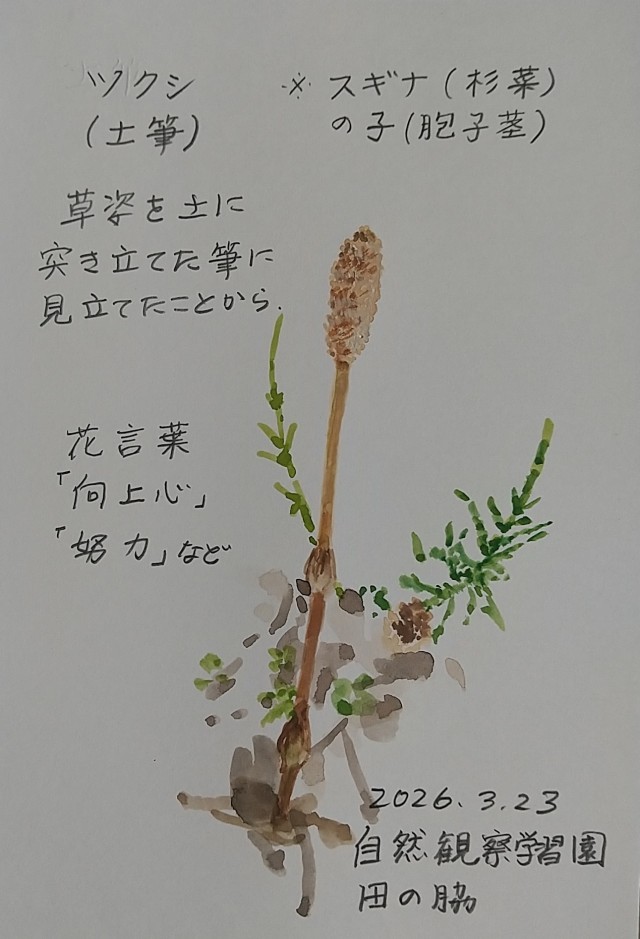 ツクシ
(土筆)
※ スギナ(杉菜)
の子(胞子茎)
草姿を土に
突き立てた筆に
見立てたことから.
花言葉
「向上心」
「努力」など
2026.3.23
自然観察学習園
田の脇